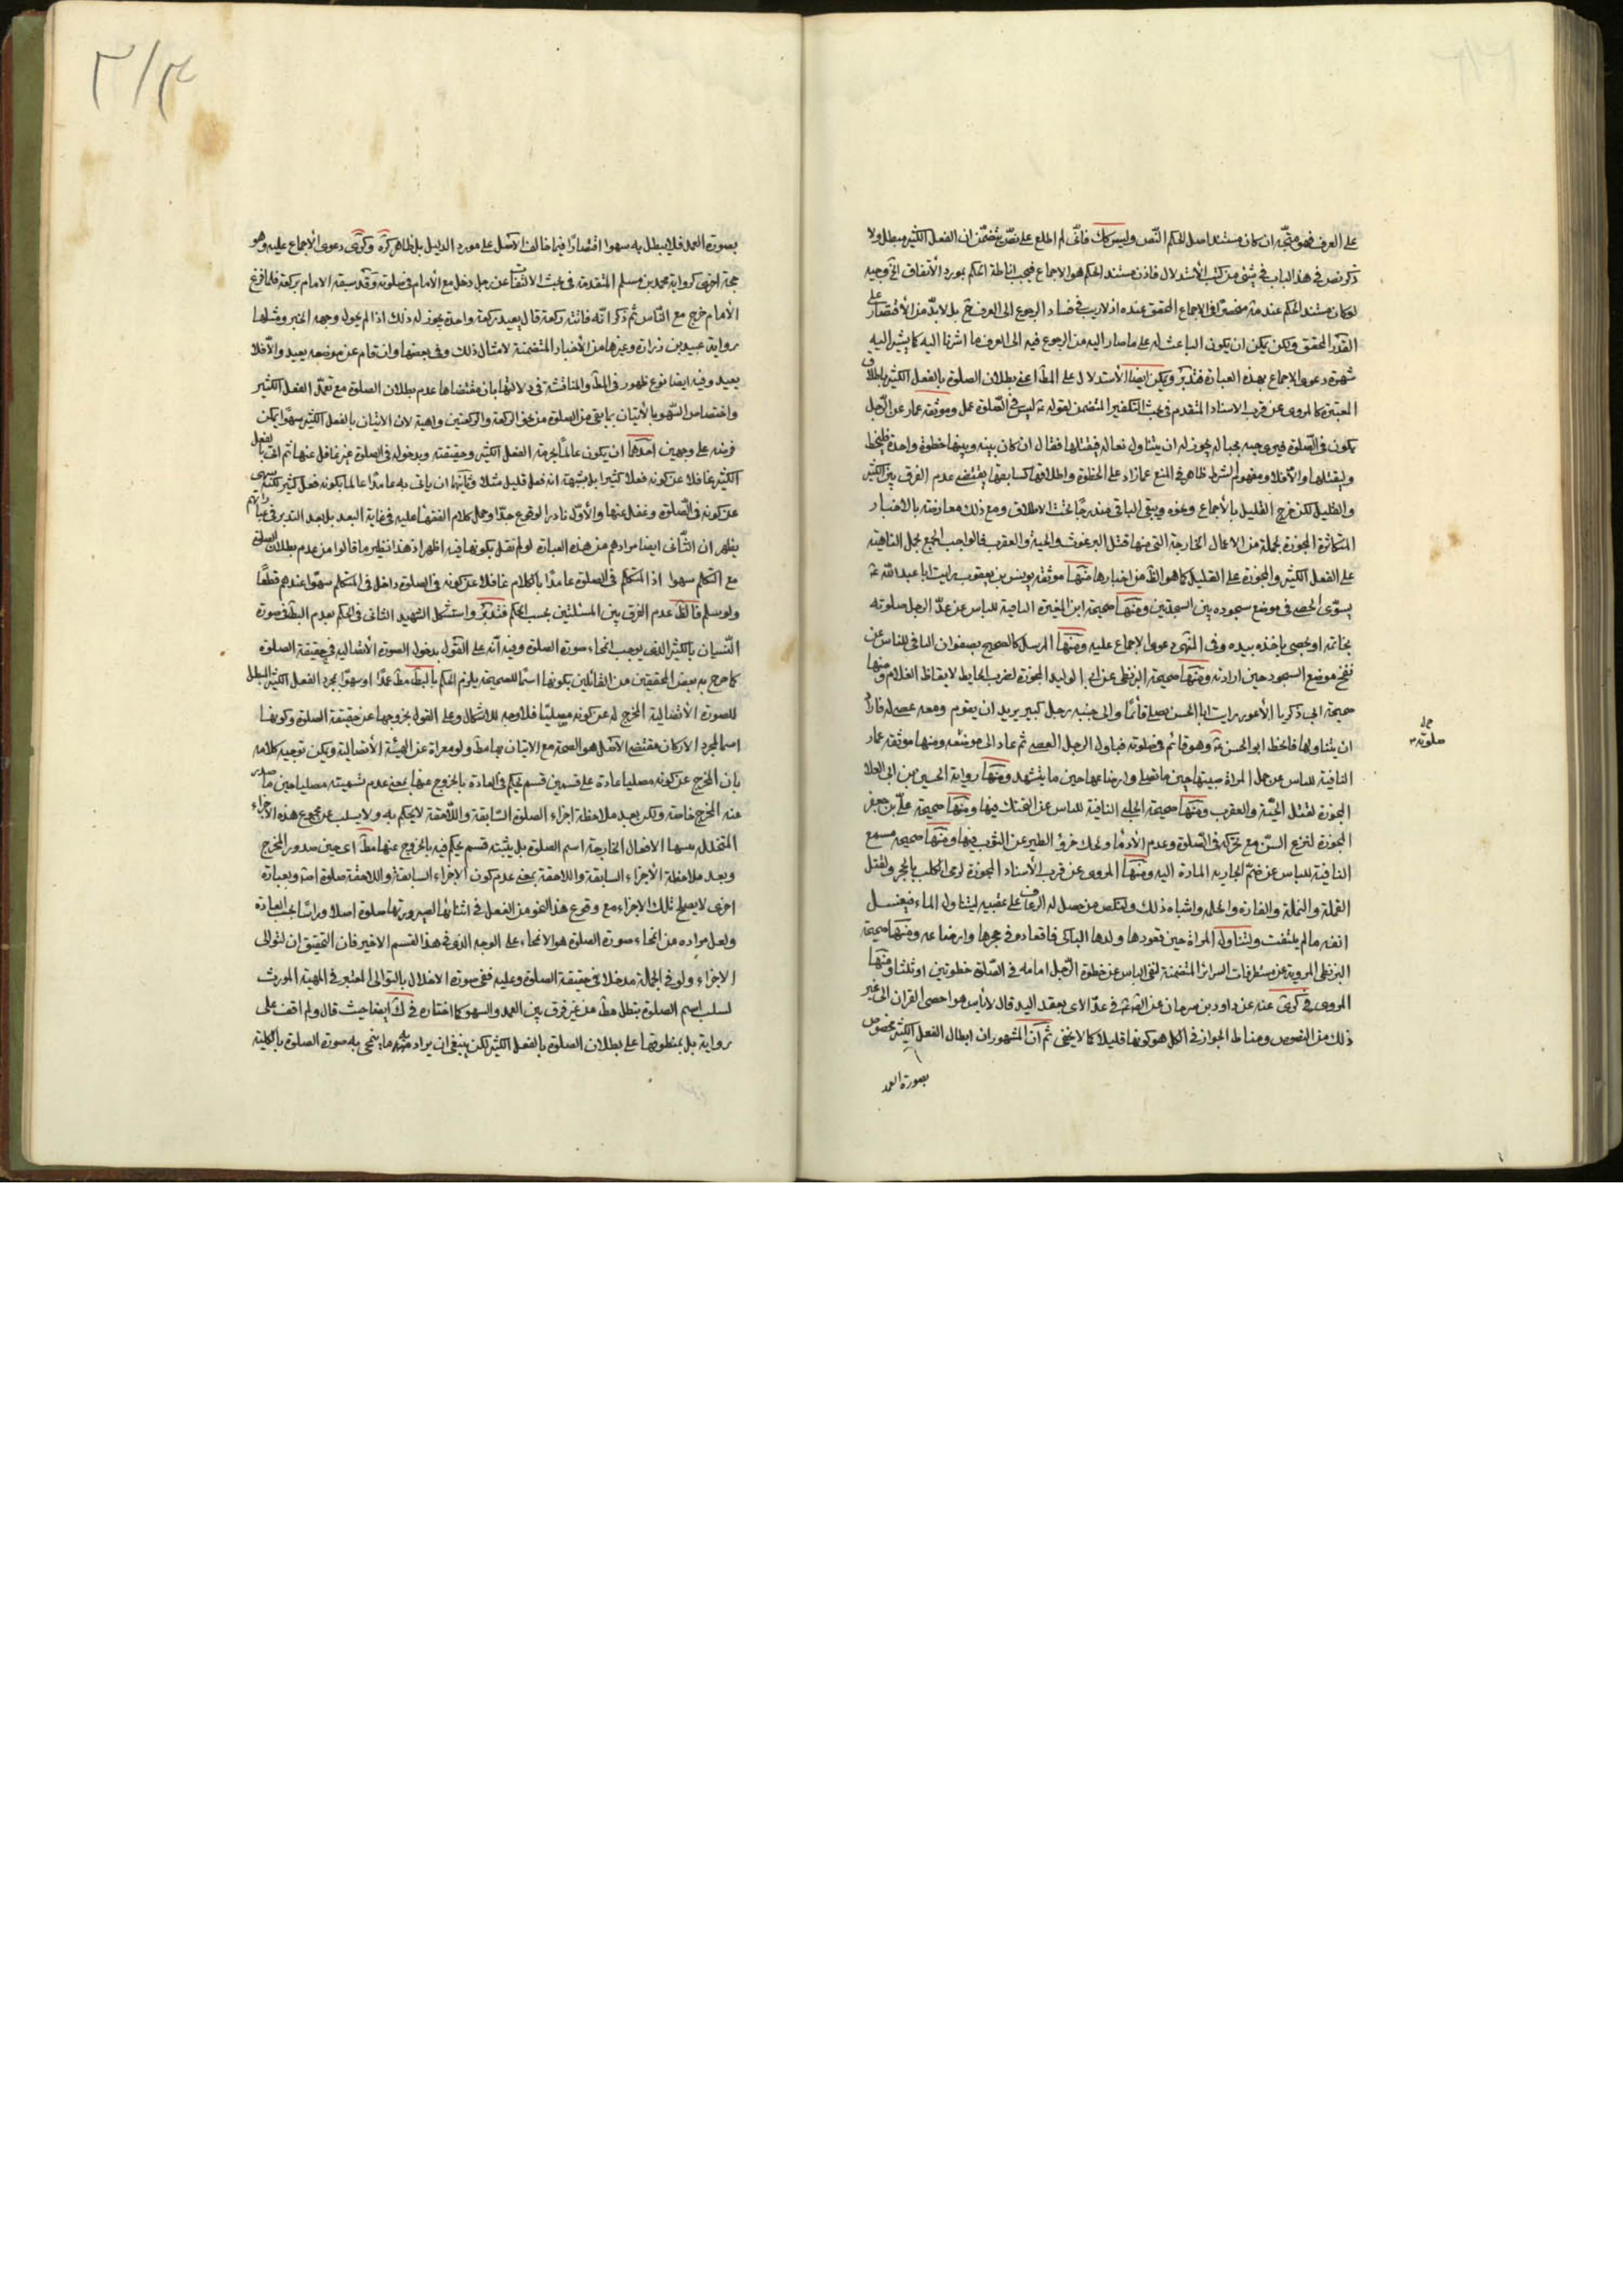 على العرف فهو متجه ان كان مستند اصل الحكم النص وليس كك فانى لم اطلع على نص يتضمن ان الفعل الكثير مبطل ولا
ذكر نص فى هذا الباب فى شئ من كتب الأستدلال فاذن مستند الحكم هو الاجماع فيجب اناطة الحكم بمورد الأتفاق
لو كان مستند الحكم عنده منحصرا فى الاجماع المحقق عنده اذ لا ريب فى فساد الرجوع الى العرف ح بل لا بد من الأقتصار على
القدر المحقق ولكن يمكن ان يكون الباعث له على ما صار اليه من الرجوع فيه الى العرف ما اشرنا اليه كما يشير اليه
شهرة دعوى الاجماع بهذه العبارة فتدبر ويمكن ايضا الأستدلال على المط اعنى بطلان الصلوة بالفعل الكثير باطلاق
المعتبرة كالمروى عن قرب الاسناد المتقدم فى بحث التكفير المتضمن لقوله ليس فى الصلوة عمل وموثقة عمار عن الرجل
يكون فى الصلوة فيرى حية بحياله يجوز له ان يتناول نعاله فيقتلها فقال ان كان بينه وبينها خطوة واحدة فليخط
وليقتلها والا فلا ومفهوم الشرط ظاهر فى المنع عما زاد على الخطوة واطلاقها كسابقها يقتضى عدم الفرق بين الكثير
والقليل لكن خرج القليل بالأجماع ونحوه ويبقى الباقى مندرجا تحت الاطلاق ومع ذلك معارضة بالاخبار
المتكاثرة المجوزة لجملة من الاعمال الخارجة التى منها قتل البرغوث والحية والعقرب فالواجب الجمع بحمل الناهية
على الفعل الكثير والمجوزة على القليل كما هو الظ من اخبارها منها موثقة يونس بن يعقوب رايت ابا عبد الله
يسوى الحصى فى موضع سجوده بين السجدتين ومنها صحيحة ابن المغيرة النافية للباس عن عد الرجل صلوته
بخاتمه او بحصى ياخذه بيده وفى المنتهى دعوى الاجماع عليه ومنها المرسل كالصحيح بصفوان النافى للباس عن
نفخ موضع السجود حين ارادته ومنها صحيحة البزنطى عن ابى الوليد المجوزة لضرب الحايط لايقاظ الغلام ومنها
صحيحة ابى ذكريا الأعور رايت ابا الحسن يصلى قائما والى جنبه رجل كبير يريد ان يقوم ومعه عصى له فاراد
ان يتناولها فانحط ابو الحسن وهو قائم فى صلوته فناول الرجل العصى ثم عاد الى موضعه ومنها موثقة عمار
النافية للباس عن حمل المراة صبيتها حين ما تصلى وارضاعها حين ما يتشهد ومنها رواية الحسين بن ابى العلا
المجوزة لقتل الحية والعقرب ومنها صحيحة الحلبى النافية للباس عن فيها ومنها صحيحة على بن جعفر
المجوزة لنزع السن مع تحركه فى الصلوة وعدم الأدماء ولحك خرؤ الطير عن الثوب فيها ومنها صحيحة مسمع
النافية للباس عن ضم الجارية المارة اليه ومنها المروى عن قرب الأسناد المجوزة لرمى الكلب بالحجر ولقتل
القملة والنملة والفارة والحلمة واشباه ذلك ولنكص من حصل له الرعاف على عقبيه ليتناول الماء فيغسل
انفه ما لم يلتفت ولتناول المراة حين قعودها ولدها الباكى فاقعاده فى حجرها وارضاعه ومنها صحيحة
البزنطى المروية عن مستطرفات السرائر المتضمنة لنفى الباس عن خطوة الرجل امامه فى الصلوة خطوتين او ثلثا ومنها
المروى فى كرى عنه عن داود بن سرحان عن الص فى عد الاى بعقد اليد قال لا باس هو احصى القران الى غير
ذلك من النصوص ومناط الجواز فى الكل هو كونها قليلا كما لا يخفى ثم ان المشهور ان ابطال الفعل الكثير مخصوص
بصورة العمد
صلوته
٣١٣
بصورة العمد فلا يبطل به سهوا اقتصارا فيما خالف الأصل على مورد الدليل بل ظاهر كره وكرى دعوى الأجماع عليه وهو
حجة اخرى كرواية محمد بن مسلم المتقدمة فى بحث الالتفات عن رجل دخل مع الأمام فى صلوته وقد سبقه الامام بركعة فلما فرغ
الأمام خرج مع الناس ثم ذكر انه فاتته ركعة قال يعيد ركعة واحدة يجوز له ذلك اذا لم يحول وجهه الخبر ومثلها
رواية عبيد بن زرارة وغيرها من الأخبار المتضمنة لامثال ذلك وفى بعضها وان قام عن موضعه يعيد والا فلا
يعيد وفيه ايضا نوع ظهور فى المط والمناقشة فى دلالتها بان مقتضاها عدم بطلان الصلوة مع تعمد الفعل الكثير
واختصاص السهو بالأتيان بما بقى من الصلوة من نحو الركعة والركعتين واهية لان الاتيان بالفعل الكثير سهوا يمكن
فرضه على وجهين احدهما ان يكون عالما بحرمة الفعل الكثير وحقيقته وبدخوله فى الصلوة غير غافل عنها ثم اتى بالفعل
الكثير غافلا عن كونه فعلا كثيرا بل بشبهة انه فعل قليل مثلا وثانيهما ان ياتى به عامدا عالما بكونه فعل كثير لكنه سهى
عن كونه فى الصلوة وغفل عنها والأول نادر الوقوع جدا وحمل كلام الفقهاء عليه فى غاية البعد بل بعد التدبر فى عباراتهم
يظهر ان الثانى ايضا مرادهم من هذه العبارة لو لم نقل بكونها فيه اظهر اذ هذا نظير ما قالوا من عدم بطلان الصلوة
مع التكلم سهوا اذ المتكلم فى الصلوة عامدا بالكلام غافلا عن كونه فى الصلوة داخل فى المتكلم سهوا عندهم قطعا
ولو سلم فالظ عدم الفرق بين المسئلتين بحسب الحكم فتدبر واستشكل الشهيد الثانى فى الحكم بعدم البط فى صورة
النسيان بالكثير الذى يوجب انمحاء صورة الصلوة وفيه انه على القول بدخول الصورة الأتصالية فى حقيقة الصلوة
كما صرح به بعض المحققين من القائلين بكونها اسما للصحيحة يلزم الحكم بالبط مط عمدا او سهوا بمجرد الفعل الكثير المبطل
للصورة الأتصالية المخرج له عن كونه مصليا فلا وجه للاشكال وعلى القول بخروجها عن حقيقة الصلوة وكونها
اسما لمجرد الأركان مقتضى الأصل هو الصحة مع الاتيان بها مط ولو معراة عن الهيئة الأتصالية ويمكن توجيه كلامه
بان المخرج عن كونه مصليا عادة على قسمين قسم يحكم فى العادة بالخروج عنها بمعنى عدم تسميته مصليا حين ما صدر
عنه المخرج خاصة ولكن بعد ملاحظة اجزاء الصلوة السابقة واللاحقة لا يحكم به ولا يسلب عن مجموع هذه الأجزاء
المتخلل بينها الافعال الخارجة اسم الصلوة بل يثبته وقسم يحكم فيه بالخروج عنها مط اى حين صدور المخرج
وبعد ملاحظة الأجزاء السابقة واللاحقة بمعنى عدم كون الاجزاء السابقة واللاحقة صلوة اصلا وبعبارة
اخرى لا يصلح تلك الاجزاء مع وقوع هذا النحو من الفعل فى اثنائها لصيرورتها صلوة اصلا وراسا بحسب العادة
ولعل مراده من انمحاء صورة الصلوة هو الانمحاء على الوجه الذى فى هذا القسم الاخير فان التحقيق ان لتوالى
الاجزاء ولو فى الجملة مدخلا فى حقيقة الصلوة وعليه ففى صورة الاخلال بالتوالى المعتبر فى المهية المورث
لسلب اسم الصلوة يبطل مط من غير فرق بين العمد والسهو كما اختاره فى ك ايضا حيث قال ولم اقف على
رواية بل بمنطوقها على بطلان الصلوة بالفعل الكثير لكن ينبغى ان يراد منه ما ينمحى به صورة الصلوة بالكلية